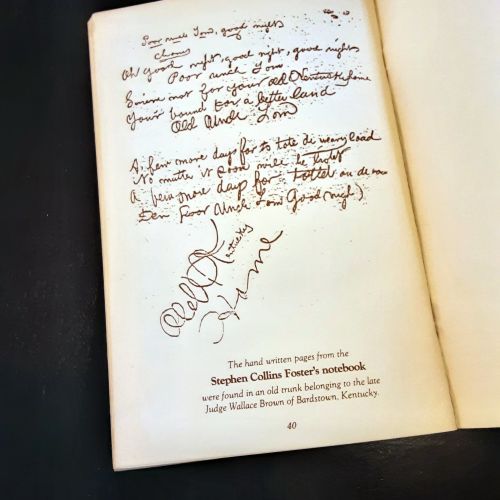 Poor uncle Tom, good night
Chorus
Oh good night, good night, good night
Poor uncle Tom
Grieve not for your old Kentucky home
Your bound for a better land
Old Uncle Tom
A few more days for to tote de weary load
No matter it soon will be light
A few more days for totter on de
Den Poor Uncle Tom Good night
Old Kentucky
Home
The hand written pages from the
Stephen Collins Foster's notebook
were found in an old trunk belonging to the late
Judge Wallace Brown of Bardstown, Kentucky.
40